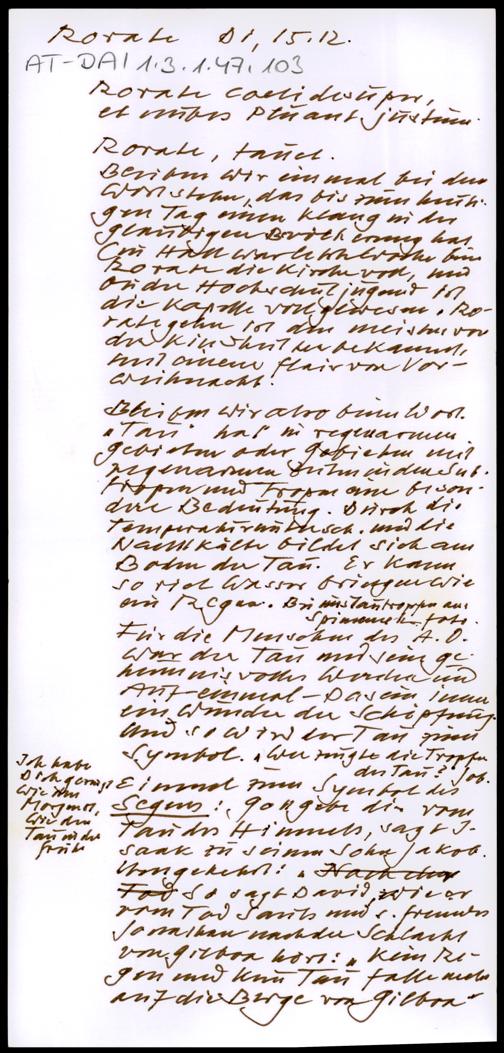 Rorate Di, 15.12.
AT-DAI 1.3.1.47.103
Rorate coeli desuper,
et nubes pluant justum.
Rorate, tauet.
Bleiben wir einmal bei dem
Wort stehn, das bis zum heuti-
gen Tag einen Klang in der
gläubigen Bevölkerung hat.
(in Hall war letzte Woche beim
Rorate die Kirche voll, und
bei der Hochschuljugend ist
die Kapelle voll gewesen. Ro-
rategehn ist den meisten von
der Kindheit her bekannt,
mit einem Flair von Vor-
weihnacht.
Bleiben wir also beim Wort.
"Tau" hat in regenarmen
gebieten oder Gebieten mit
regenarmen Zeiten in den Sub-
tropen und Tropen eine beson-
dere Bedeutung. Durch die
Temperaturuntersch. und die
Nachtkälte bildet sich am
Boden der Tau. Er kann
so viel Wasser bringen wie
ein Regen. Bei uns Tautropfen am
Spinnennetz. Foto.
Für die Menschen des A.T.
war der Tau und sein ge-
heimnisvolles Werden und
Auf-einmal-Dasein immer
ein Wunder der Schöpfung.
Und so wird der Tau zum
Symbol. "Wer zeugte die Tropfen
des Tau?" Job.
Ich habe
Dich gezeugt
wie den
Morgenrot,
wie den
Tau in der
Frühe
Einmal zum Symbol des
Segens: "Gott gebe dir vom
Tau des Himmels, sagt I-
saak zu seinem Sohn Jakob.
Umgekehrt: "Nach dem
Tod So sagt David, wie er
vom Tod Sauls und s. Freundes
Jonathan nach der Schlacht
von Gilboa hört: "Kein Re-
gen und kein Tau falle mehr
auf die Berge von Gilboa"